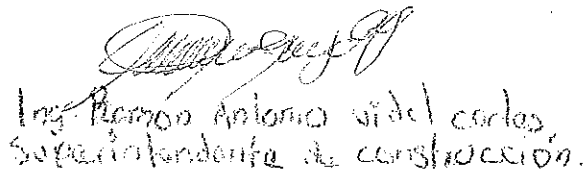 Ing. Ramón Antonio vidal cortes.
Superintendente de construcción.